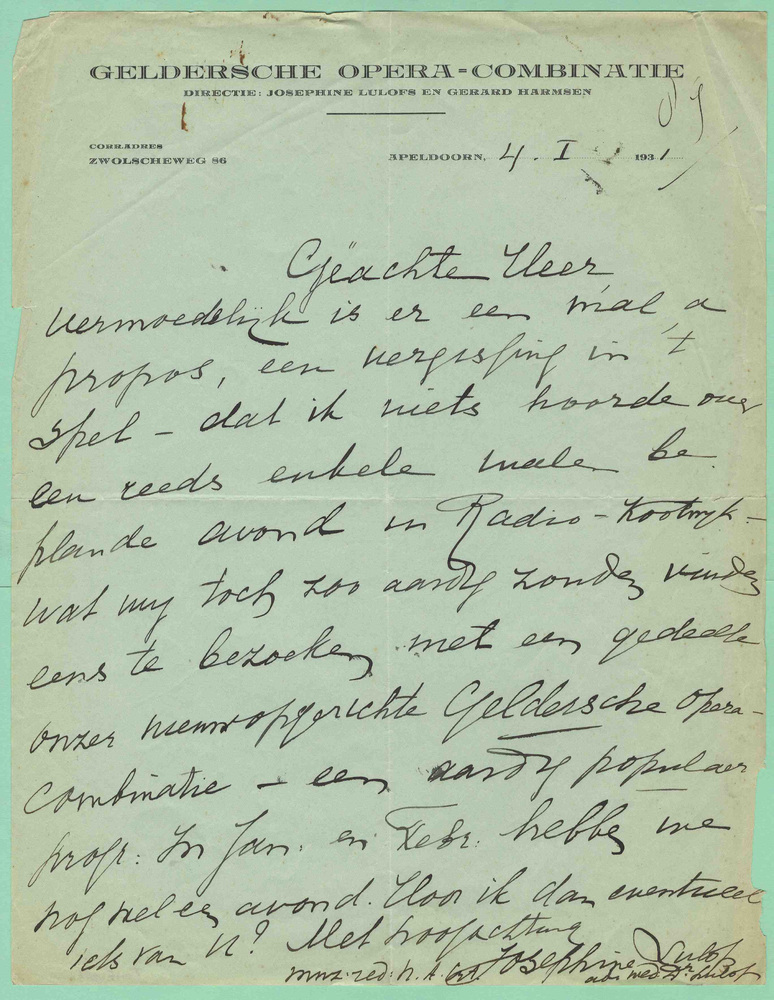 GELDERSCHE OPERA=COMBINATIE
DIRECTIE: JOSEPHINE LULOFS EN GERARD HARMSEN
CORR.ADRES
ZWOLSCHEWEG 86
APELDOORN, 4. I 1931
Geachte Heer
vermoedelijk is er een mal a
propos, een vergissing in 't
spel - dat ik niets hoorde over
een reeds enkele malen be
plande avond in Radio-Kootwijk -
wat wij toch zoo aardig zouden vinden
eens te bezoeken met een gedeelte
onzer nieuwopgerichte Geldersche Opera-
Combinatie - een aardig populair
progr: In Jan. en Febr: hebben we
nog wel een avond. Hoor ik dan eventueel
iets van U? Met hoogachting
Josephine Lulofs
muz: red: